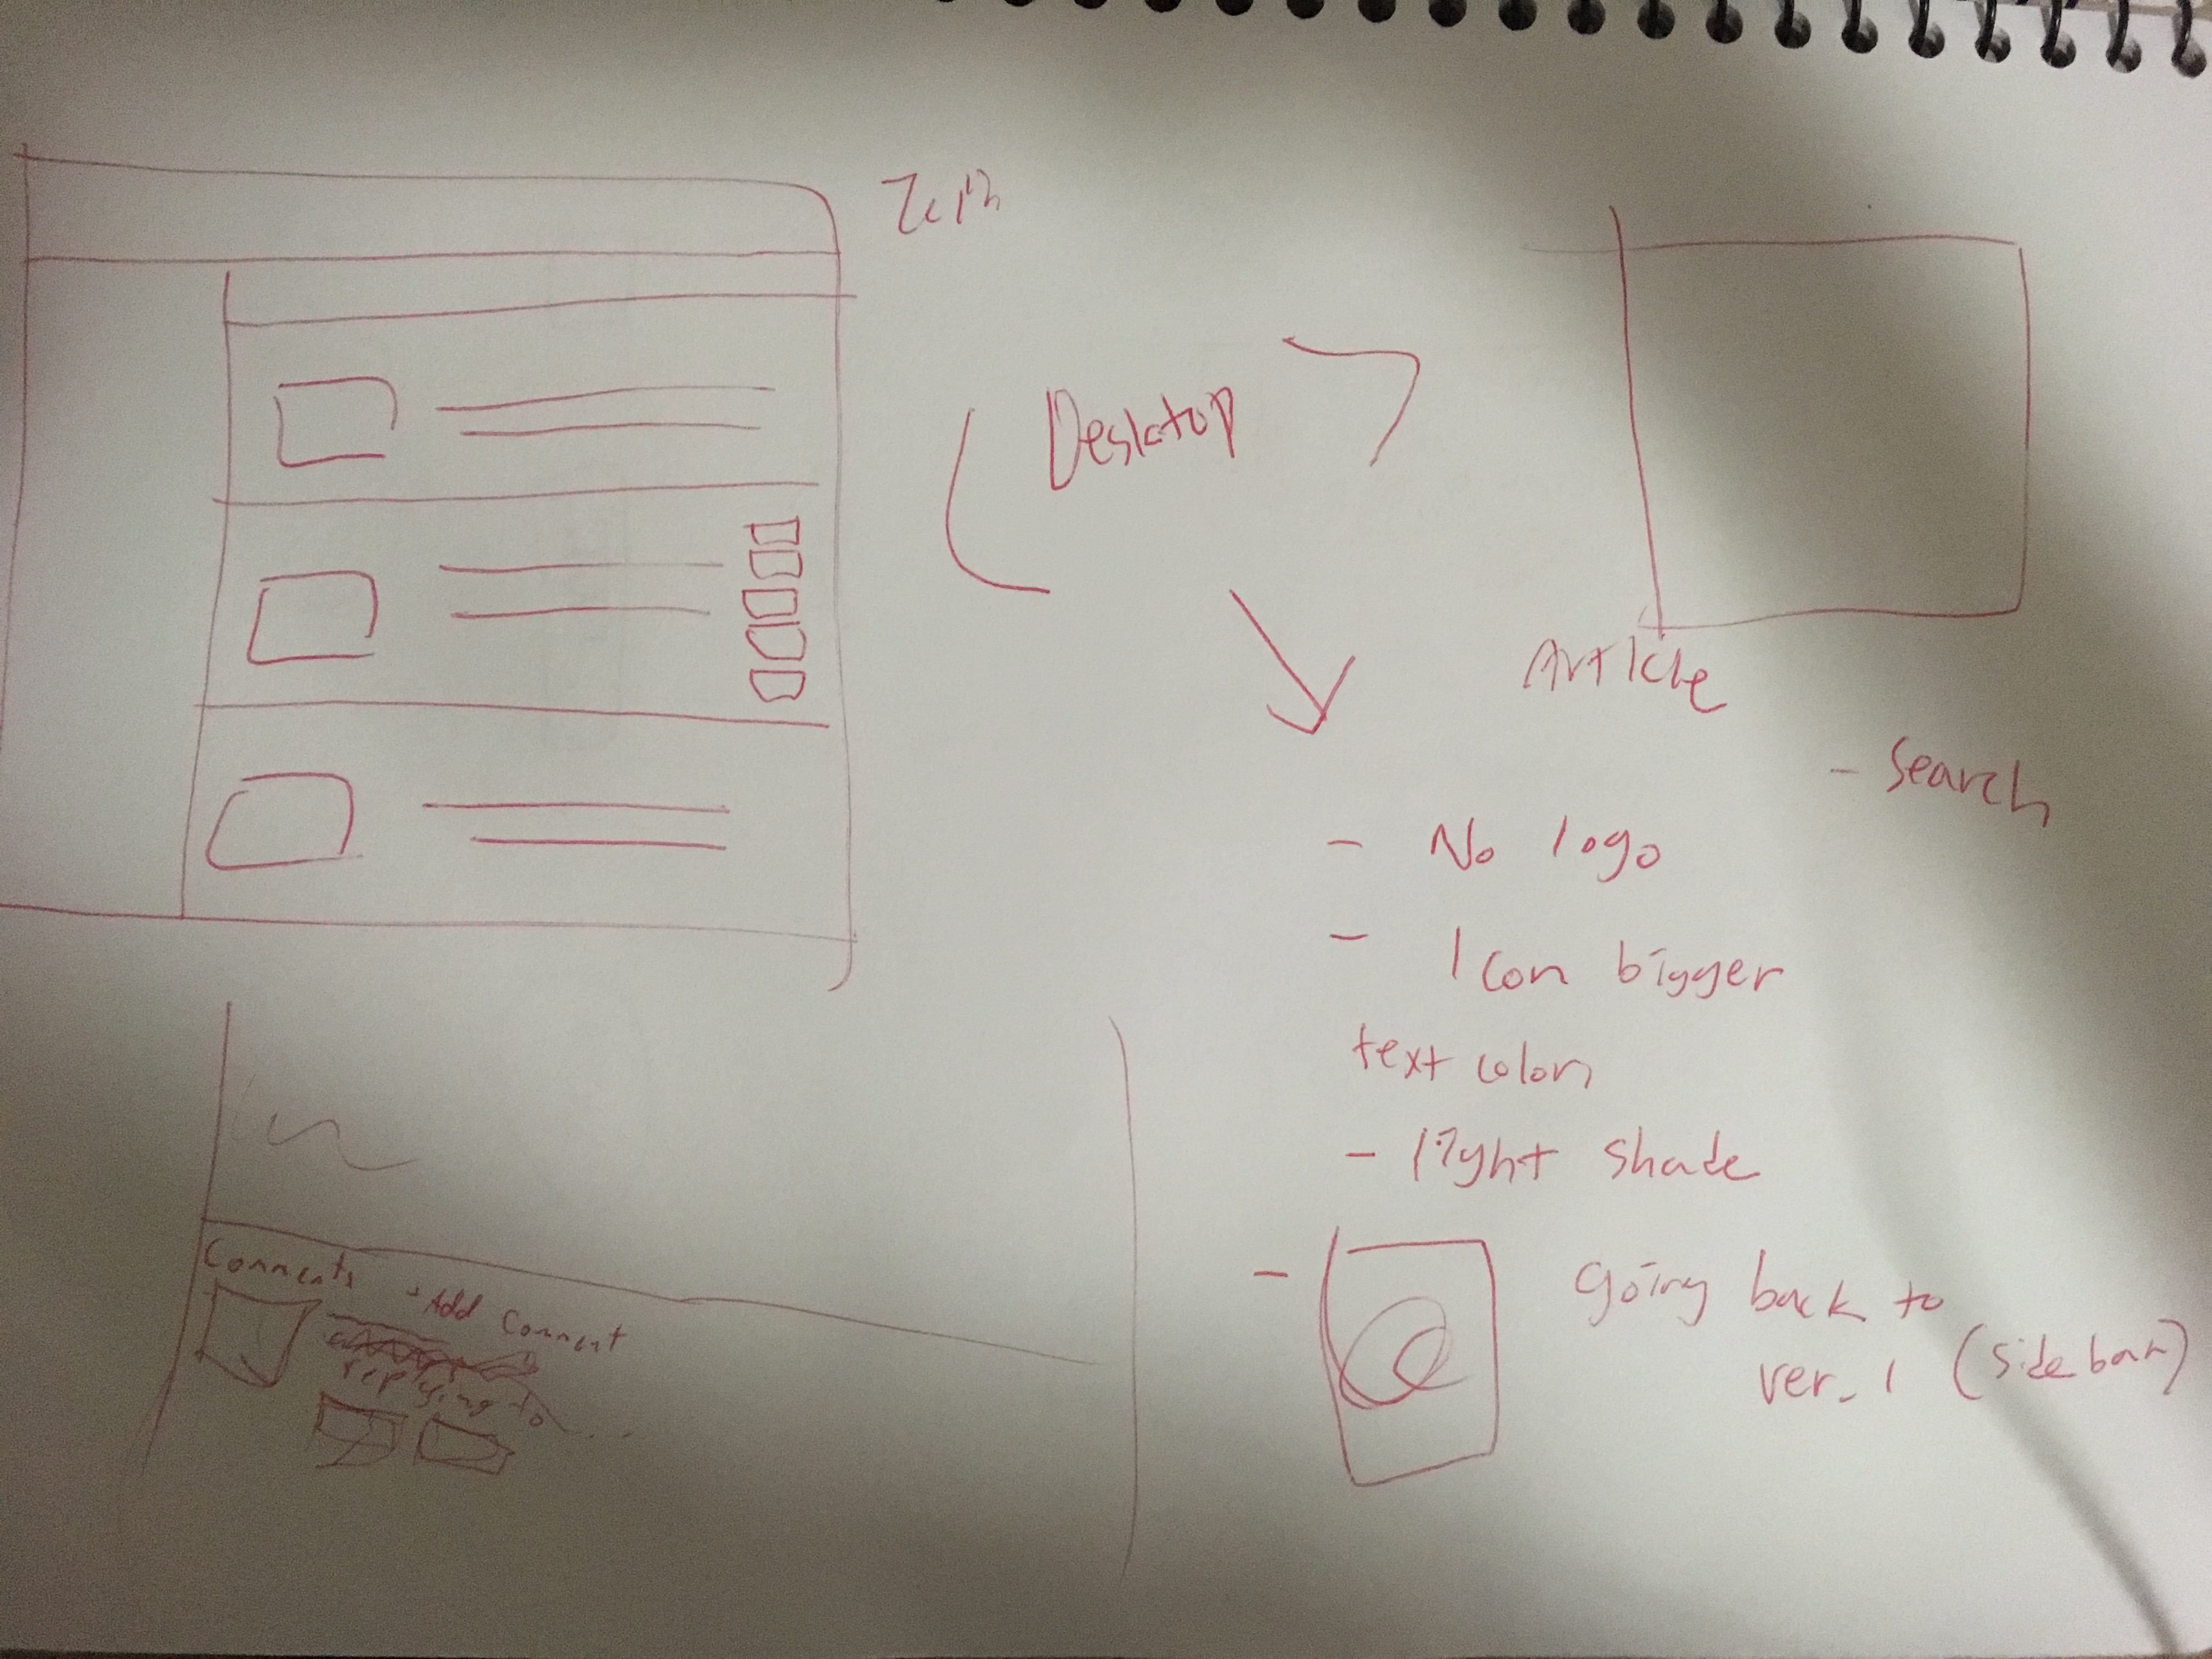 Desktop
Article
- Search
- No logo
- Icon bigger
text color
- light shade
- going back to
ver. 1 (sidebar)
Comments
- Add Comment
replying to...